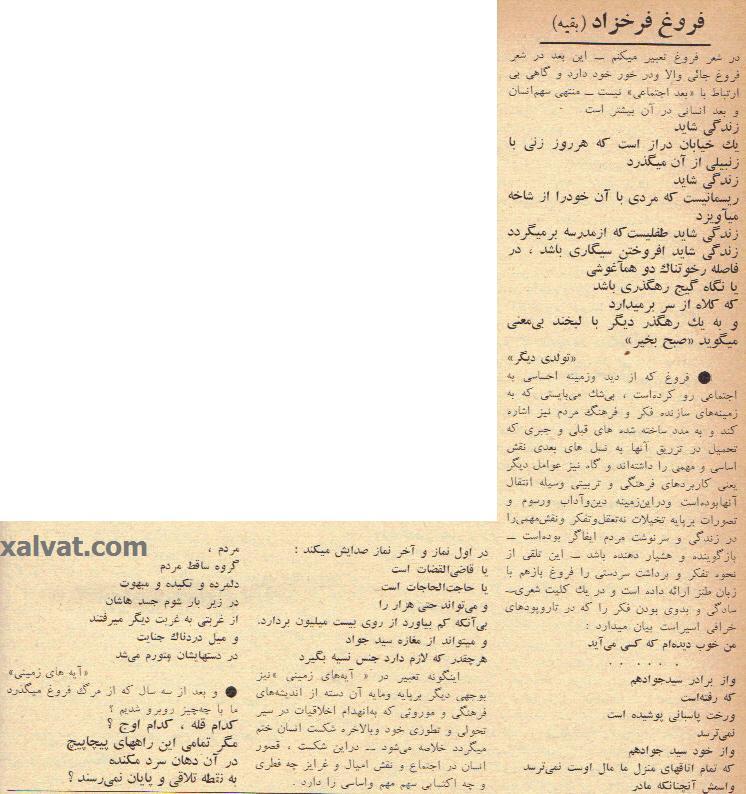 فروغ فرخزاد (بقیه)
در شعر فروغ تعبیر میکنم ــ این بعد در شعر
فروغ جائی والا ودر خور خود دارد و گاهی بی
ارتباط با «بعد اجتماعی» نیست ــ منتهی سهم‌انسان
و بعد انسانی در آن بیشتر است .
زندگی شاید
یك خیابان دراز است که هرروز زنی با
زنبیلی از آن میگذرد
زندگی شاید
ریسمانیست که مردی با آن خودرا از شاخه
میآویزد
زندگی شاید طفلیست‌که ازمدرسه برمیگردد
زندگی شاید افروختن سیگاری باشد ، در
فاصله رخوتناك دو همآغوشی
یا نگاه گیج رهگذری باشد
که کلاه از سر برمیدارد
و به یك رهگذر دیگر با لبخند بی‌معنی
میگوید «صبح بخیر»
«تولدی دیگر»
● فروغ که از دید وزمینه احساسی به
اجتماعی رو کرده‌است ، بی‌شك می‌بایستی که به
زمینه‌های سازنده فکر و فرهنگ مردم نیز اشاره
کند و به مدد ساخته شده های قبلی و جبری که
تحمیل در تزریق آنها به نسل های بعدی نقش
اساسی و مهمی را داشته‌اند و گاه نیز عوامل دیگر
یعنی کاربردهای فرهنگی و تربیتی وسیله انتقال
آنهابوده‌است ودراین‌زمینه دین‌وآداب ورسوم و
تصورات برپایه تخیلات نه‌تعقل‌وتفکر ونقش‌مهمی‌را
در زندگی و سرنوشت مردم ایفاگر بوده‌است ــ
بازگوینده و هشیار دهنده باشد ــ این تلقی از
نحوه تفکر و برداشت سردستی را فروغ بازهم با
زبان طنز ارائه داده است و در یك کلیت شعری‌ــ
سادگی و بدوی بودن فکر را که در تاروپودهای
خرافی اسیراست بیان میدارد :
من خوب دیده‌ام که کسی می‌آید
. . . . . .
واز برادر سیدجوادهم
که رفته‌است
ورخت پاسبانی پوشیده است
نمی‌ترسد
واز خود سید جوادهم
که تمام اتاقهای منزل ما مال اوست نمی‌ترسد
واسمش آنچنانکه مادر
در اول نماز و آخر نماز صدایش میکند :
یا قاضی‌القضات است
یا حاجت‌الحاجات است
و می‌تواند حتی هزار را
بی‌آنکه کم بیاورد از روی بیست میلیون بردارد.
و میتواند از مغازه سید جواد
هرچقدر که لازم دارد جنس نسیه بگیرد
اینگونه تعبیر در « آیه‌های زمینی »نیز
بوجهی دیگر برپایه ومایه آن دسته از اندیشه‌های
فرهنگی و موروثی که به‌انهدام اخلاقیات در سیر
تحولی و تطوری خود وبالاخره شکست انسان ختم
میگردد خلاصه می‌شود ــ دراین شکست ، قصور
انسان در اجتماع و نقش امیال و غرایز چه فطری
و چه اکتسابی سهم مهم واساسی را دارد .
مردم ،
گروه ساقط مردم
دلمرده و تکیده و مبهوت
در زیر بار شوم جسد هاشان
از غربتی به غربت دیگر میرفتند
و میل دردناك جنایت
در دستهایشان متورم می‌شد
«آیه های زمینی»
● و بعد از سه سال که از مرگ فروغ میگذرد
ما با چه‌چیز روبرو شدیم ؟
کدام قله ، کدام اوج ؟
مگر تمامی این راههای پیچاپیچ
در آن دهان سرد مکنده
به نقطه تلاقی و پایان نمی‌رسند ؟
xalvat.com